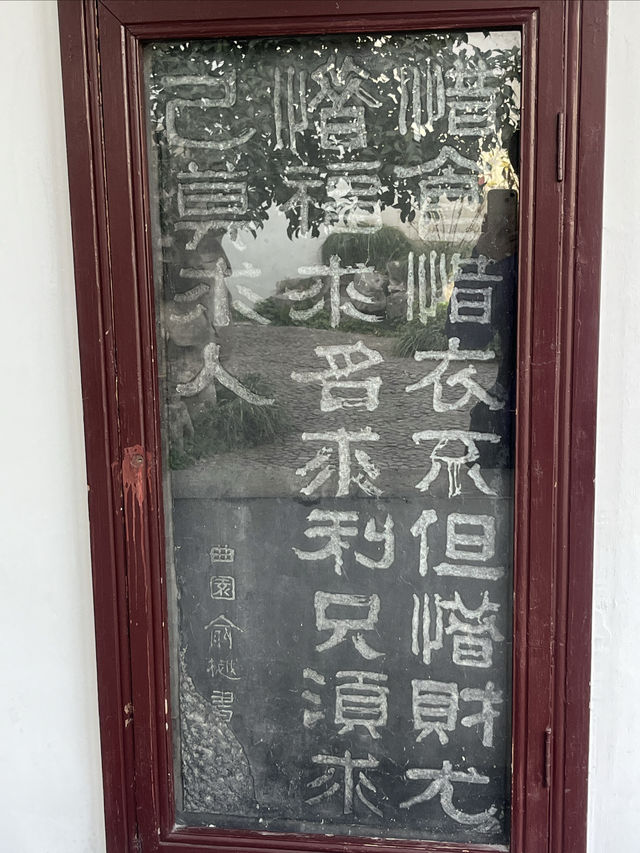 惜食惜衣不但惜財尤
惜福求名求利只須求
己莫求人
曲園俞樾書